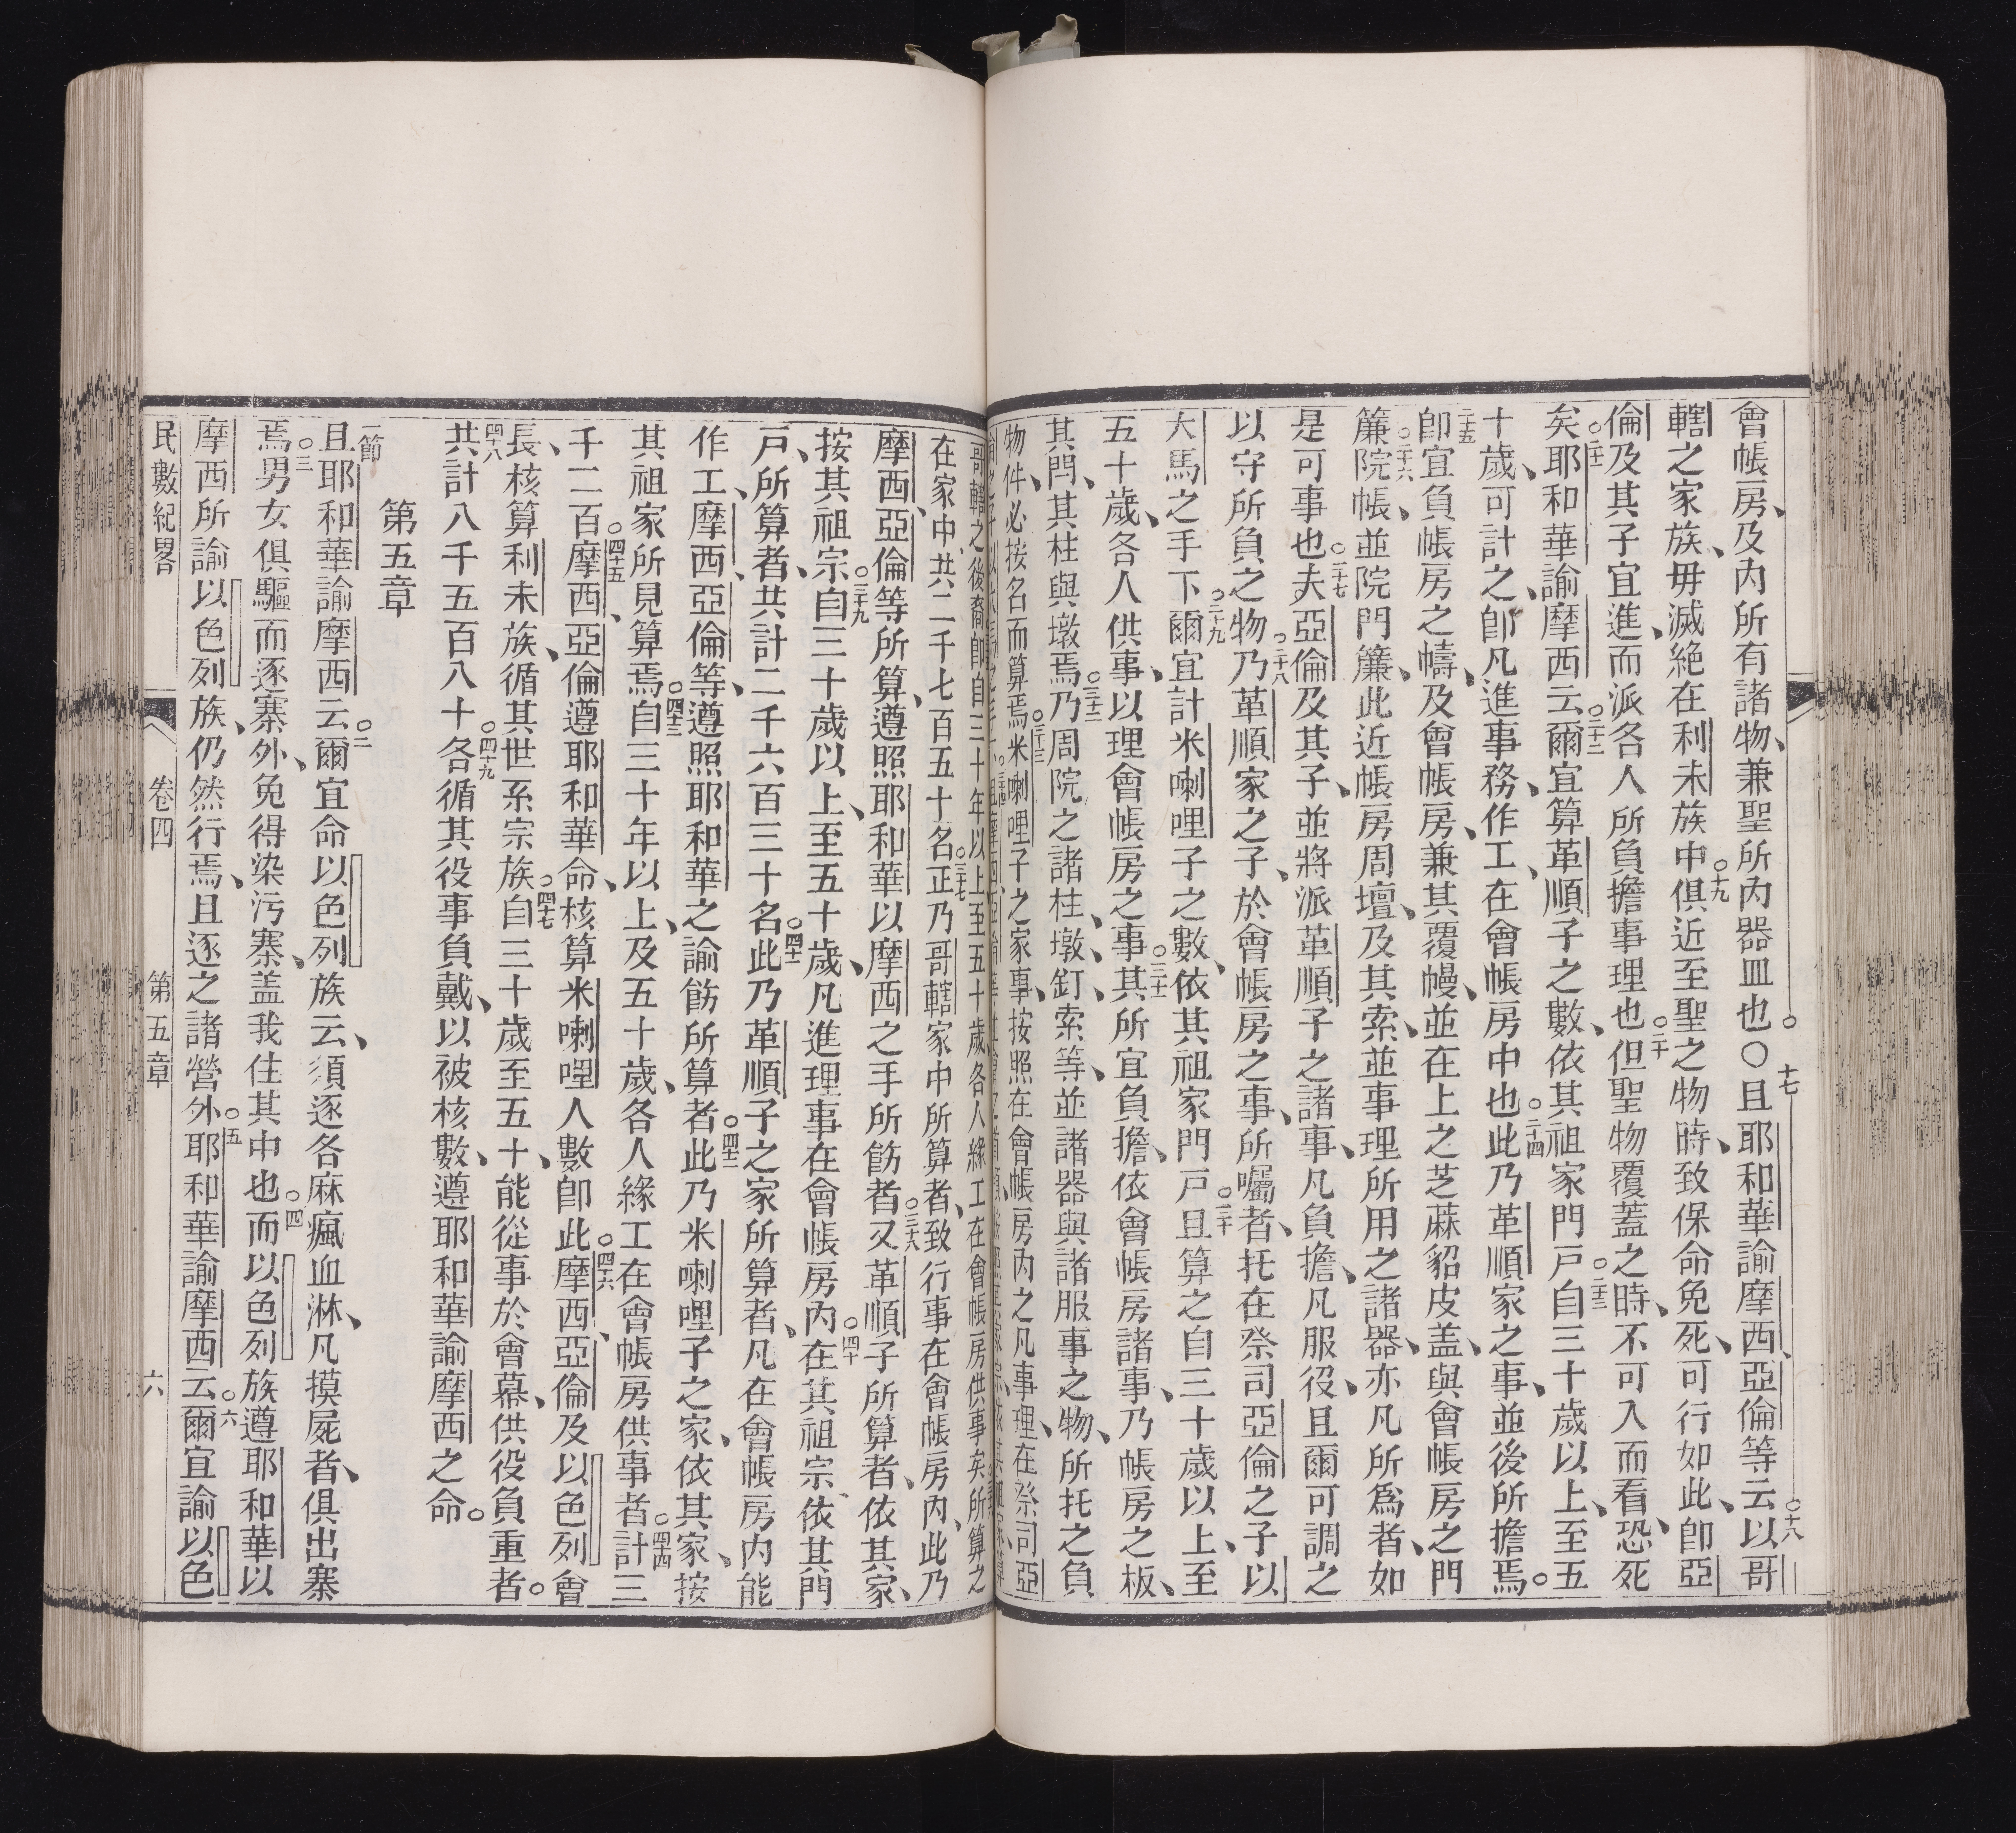 會帳房、及內所有諸物、兼聖所內器皿也。〇十七且耶和華諭摩西、亞倫等云、十八以哥
轄之家族、毋滅絕在利未族中。十九俱近至聖之物時、致保命免死、可行如此、卽亞
倫及其子宜進、而派各人所負擔事理也。二十但聖物覆蓋之時、不可入而看、恐死
矣。二十一耶和華諭摩西云、二十二爾宜算革順子之數、依其祖家門戶。二十三自三十歲以上、至五
十歲、可計之、卽凡進事務、作工、在會帳房中也。二十四此乃革順家之事、並後所擔焉。
二十五卽宜負帳房之幬、及會帳房、兼其覆幔、並在上之芝蔴貂皮盖、與會帳房之門
簾。二十六院帳、並院門簾、此近帳房周壇、及其索、並事理所用之諸器、亦凡所爲者、如
是可事也。二十七夫亞倫及其子、並將派革順子之諸事、凡負擔、凡服役、且爾可調之
以守所負之物。二十八乃革順家之子、於會帳房之事、所囑者、托在祭司亞倫之子、以
大馬之手下。二十九爾宜計米喇哩子之數、依其祖家門戶。三十且算之自三十歲以上、至
五十歲、各人供事、以理會帳房之事。三十一其所宜負擔、依會帳房諸事、乃帳房之板、
其閂、其柱與墩焉。三十二乃周院之諸柱、墩、釘、索等、並諸器與諸服事之物、所托之負
物件、必按名而算焉。三十三米喇哩子之家事、按照在會帳房內之凡事理、在祭司亞
哥轄之後裔、卽自三十年以上至五十歲、各人緣工在會帳房供事矣。所算之
在家中、共二千七百五十名。三十七正乃哥轄家中所算者、致行事在會帳房內、此乃
摩西、亞倫等所算、遵照耶和華以摩西之手所飭者。三十八又革順子所算者、依其家、
按其祖宗。三十九自三十歲以上、至五十歲、凡進理事在會帳房內。四十在其祖宗依其門
戶、所算者、共計二千六百三十名。四十一此乃革順子之家所算者、凡在會帳房內能
作工、摩西、亞倫等、遵照耶和華之諭飭所算者。四十二此乃米喇哩子之家、依其家、按
其祖家所見算焉。四十三自三十年以上、及五十歲、各人緣工在會帳房供事者。四十四計三
千二百。四十五摩西、亞倫遵耶和華命、核算米喇哩人數卽此。四十六摩西、亞倫及以色列會
長、核算利未族、循其世系宗族。四十七自三十歲至五十、能從事於會幕、供役負重者。
四十八共計八千五百八十。四十九各循其役事負戴、以被核數、遵耶和華諭摩西之命。
第五章
一節且耶和華諭摩西云、二爾宜命以色列族云、須逐各麻瘋血淋、凡摸屍者、俱出寨
焉。三男女俱驅而逐寨外、免得染污寨、盖我住其中也。四而以色列族遵耶和華以
摩西所諭以色列族、仍然行焉、且逐之諸營外。五耶和華諭摩西云、六爾宜諭以色
民數紀畧 卷四 第五章 六